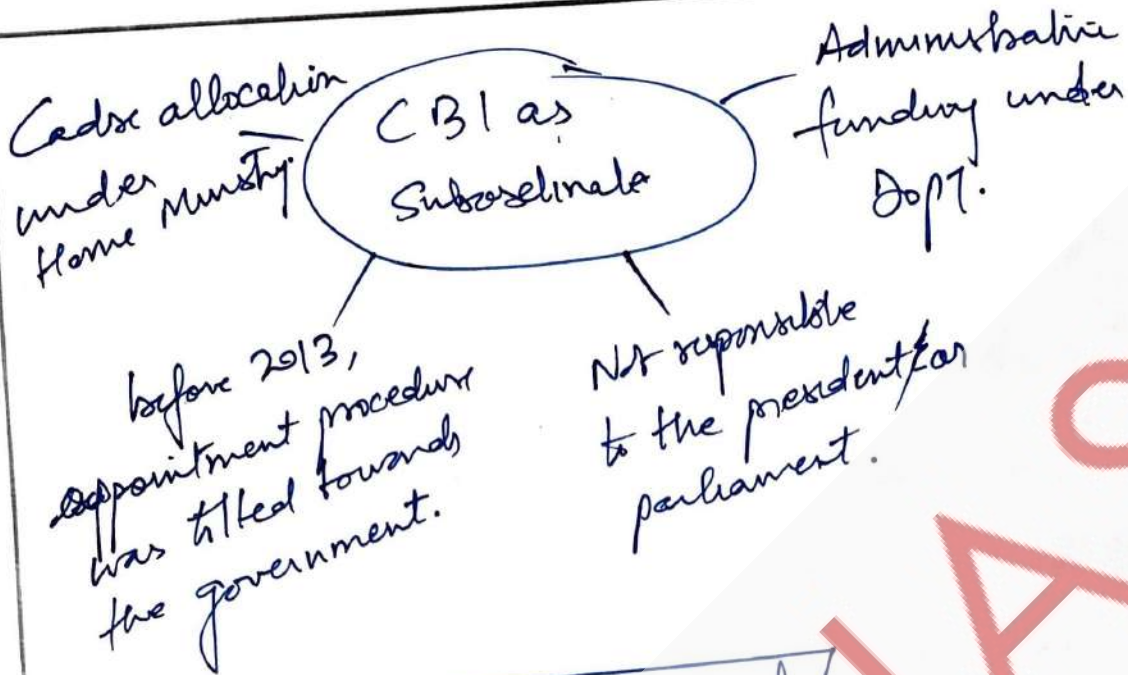 CBI as
Subordinate
Cadre allocation
under
Home Ministry.
Administrative
funding under
DopT.
before 2013,
appointment procedure
was tilted towards
the government.
Not responsible
to the president/or
parliament.